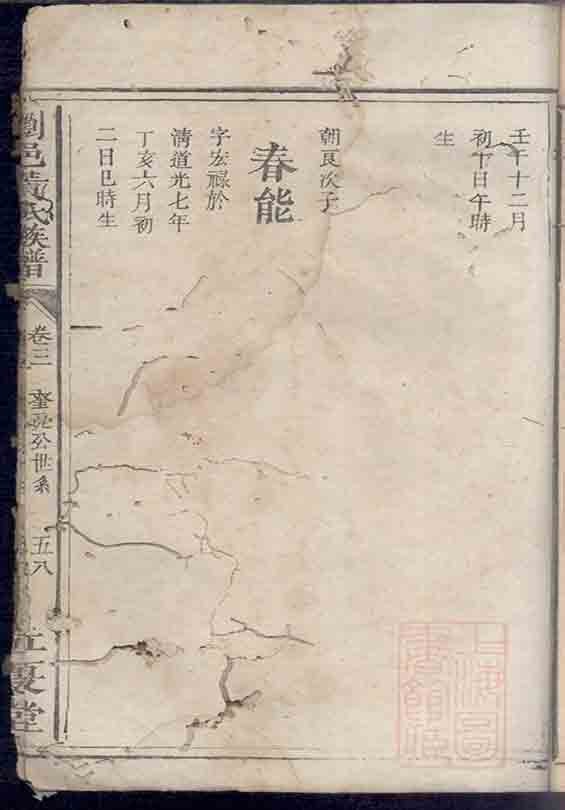 壬午十二月
初十日午時
生
朝良次子
春能
字宏祿於
清道光七年
丁亥六月初
二日巳時生
劉邑黃氏族譜
卷三
奎亮公世系
五八
江夏堂
上海圖書館藏